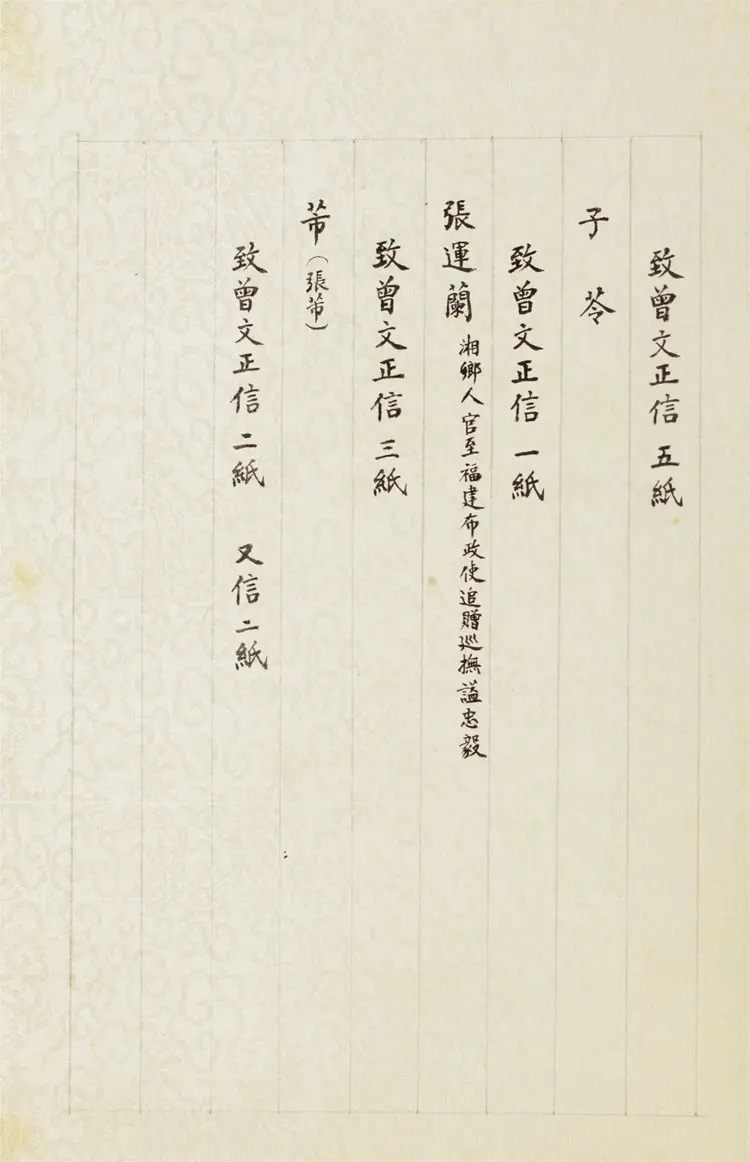 致曾文正信 五紙
子苓
致曾文正信 一紙
張運蘭 湘鄉人官至福建布政使追贈巡撫謚忠毅
致曾文正信 三紙
芾（張芾）
致曾文正信 二紙 又信二紙